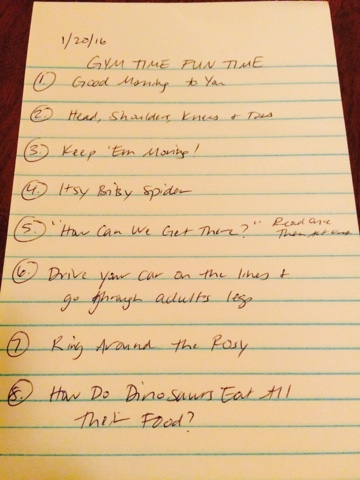 1/20/16
GYM TIME FUN TIME
1. Good Morning to You
2. Head, Shoulders, Knees & Toes
3. Keep 'Em Moving!
4. Itsy Bitsy Spider
5. "How Can We Get There?" Read One
Then
6. Drive your car on the lines &
go through adults legs
7. Ring Around the Rosy
8. How Do Dinosaurs Eat All
Their Food?